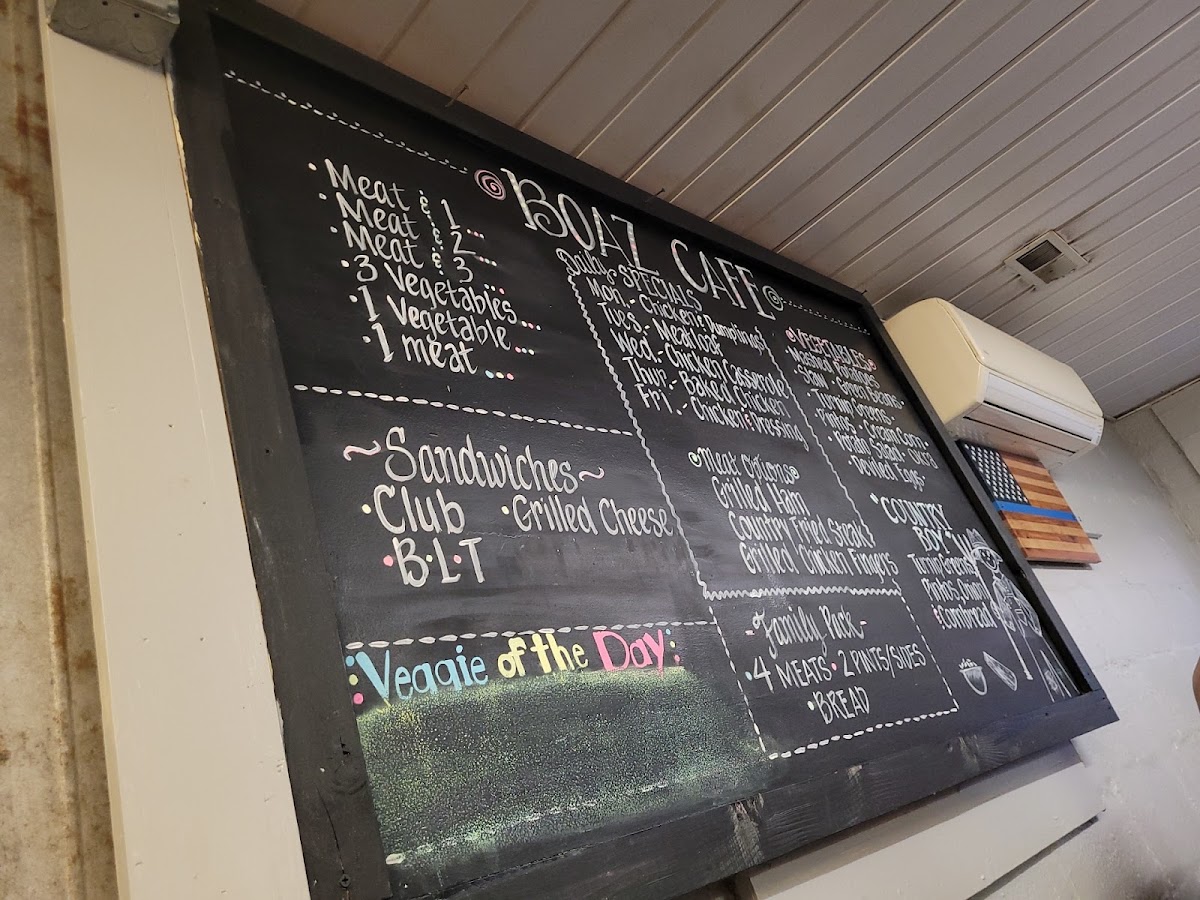 BOAZ CAFE
• Meat & 1 ...
• Meat & 2 ...
• Meat & 3 ...
• 3 Vegetables ...
• 1 Vegetable ...
• 1 meat ...
~Sandwiches~
• Club • Grilled Cheese
• B•L•T
Veggie of the Day
Daily SPECIALS
Mon. - Chicken & Dumplings
Tues. - Meatloaf
Wed. - Chicken Casserole
Thur. - Baked Chicken
Fri. - Chicken & Dressing
Meat Options
Grilled Ham
Country Fried Steak
Grilled Chicken Fingers
- Family Pack -
• 4 MEATS • 2 PINTS/SIDES
• BREAD
• VEGETABLES •
Mashed Potatoes
Slaw • Green Beans •
• Turnip Greens •
Pintos • Cream Corn •
Potato Salad • Okra
• Deviled Eggs •
COUNTRY
BOY
Turnip Greens
Pintos, Onion
& Cornbread